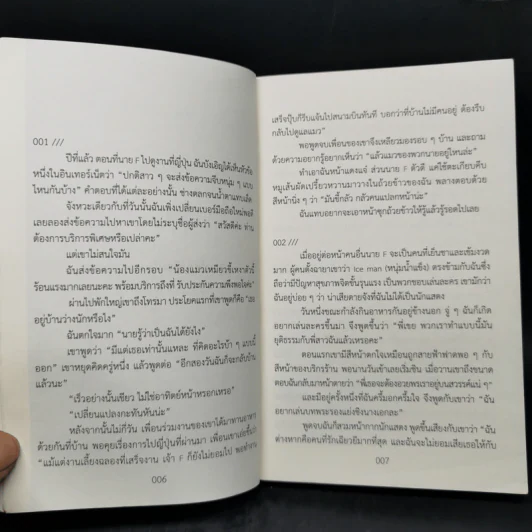 001 ///
ปีที่แล้ว ตอนที่นาย F ไปดูงานที่ญี่ปุ่น ฉันบังเอิญได้เห็นหัวข้อ
หนึ่งในอินเทอร์เน็ตว่า "ปกติสาว ๆ จะส่งข้อความจีบหนุ่ม ๆ แบบ
ไหนกันบ้าง" คำตอบที่ได้แต่ละอย่างนั้น ช่างตลกจนน้ำตาแทบเล็ด
จังหวะเดียวกับที่วันนั้นฉันเพิ่งเปลี่ยนเบอร์มือถือใหม่พอดี
เลยลองส่งข้อความไปหาเขาโดยไม่ระบุชื่อผู้ส่งว่า "สวัสดีค่ะ ท่าน
ต้องการบริการพิเศษหรือเปล่าคะ"
แต่เขาไม่สนใจฉัน
ฉันส่งข้อความไปอีกรอบ "น้องแมวเหมียวขี้เหงาตัวนี้
ร้อนแรงมากเลยนะคะ พร้อมบริการถึงที่ รับประกันความพึงพอใจค่ะ"
ผ่านไปพักใหญ่เขาถึงโทรมา ประโยคแรกที่เขาพูดก็คือ "เธอ
อยู่บ้านว่างนักหรือไง"
ฉันตกใจมาก "นายรู้ว่าเป็นฉันได้ยังไง"
เขาพูดว่า "มีแต่เธอเท่านั้นแหละ ที่คิดอะไรบ้า ๆ แบบนี้
ออก" เขาหยุดคิดครู่หนึ่ง แล้วพูดต่อ "อีกสองวันฉันก็จะกลับบ้าน
แล้วนะ"
"เร็วอย่างนั้นเชียว ไม่ใช่อาทิตย์หน้าหรอกเหรอ"
"เปลี่ยนแปลงกะทันหันน่ะ"
หลังจากนั้นไม่กี่วัน เพื่อนร่วมงานของเขาได้มาทานอาหาร
ด้วยกันที่บ้าน พอคุยเรื่องการไปญี่ปุ่นที่ผ่านมา เพื่อนเขาเอ่ยขึ้นว่า
"แม้แต่งานเลี้ยงฉลองที่เสร็จงาน เจ้า F ก็ยังไม่ยอมไป พอทำงาน
006
เสร็จปุ๊บก็รีบแจ้นไปสนามบินทันที บอกว่าที่บ้านไม่มีคนอยู่ ต้องรีบ
กลับไปดูแลแมว"
พอพูดจบเพื่อนของเขาจึงเหลียวมองรอบ ๆ บ้าน และถาม
ด้วยความอยากรู้อยากเห็นว่า "แล้วแมวของพวกนายอยู่ไหนล่ะ"
ทำเอาฉันหน้าแดงแจ๋ ส่วนนาย F ตัวดี แค่ใช้ตะเกียบคีบ
หมูเส้นผัดเปรี้ยวหวานมาวางในถ้วยข้าวของฉัน พลางตอบด้วย
สีหน้านิ่ง ๆ ว่า "มันขี้กลัว กลัวคนแปลกหน้าน่ะ"
ฉันแทบอยากจะเอาหน้าซุกถ้วยข้าวให้รู้แล้วรู้รอดไปเลย
002 ///
เมื่ออยู่ต่อหน้าคนอื่นนาย F จะเป็นคนที่เย็นชาและเข้มงวด
มาก ผู้คนตั้งฉายาเขาว่า Ice man (หนุ่มน้ำแข็ง) ตรงข้ามกับฉันซึ่ง
ถือว่ามีปัญหาสุขภาพจิตขั้นรุนแรง เป็นพวกชอบเล่นละคร เขามักว่า
ฉันอยู่บ่อย ๆ ว่า น่าเสียดายจังที่ฉันไม่ได้เป็นนักแสดง
วันหนึ่งขณะกำลังกินอาหารกันอยู่ข้างนอก จู่ ๆ ฉันก็เกิด
อยากเล่นละครขึ้นมา จึงพูดขึ้นว่า "พี่เขย พวกเราทำแบบนี้มัน
ยุติธรรมกับพี่สาวฉันแล้วเหรอคะ"
ตอนแรกเขามีสีหน้าตกใจเหมือนถูกสายฟ้าฟาดพอ ๆ กับ
สีหน้าของบริกรร้าน พอนานวันเข้าเลยเริ่มชิน เมื่อวานเขาถึงขนาด
ตอบฉันกลับมาหน้าตายว่า "พี่เธอจะต้องอวยพรเราอยู่บนสวรรค์แน่ ๆ"
และมีอยู่ครั้งหนึ่งที่ฉันครึ้มอกครึ้มใจ จึงพูดกับเขาว่า "ฉัน
อยากเล่นบทพระรองแย่งชิงนางเอกละ"
พูดจบฉันก็สวมหน้ากากนักแสดง พูดขึ้นเสียงกับเขาว่า "ฉัน
ต่างหากคือคนที่รักเฉียวอีมากที่สุด และฉันจะไม่ยอมเสียเธอให้กับ
007